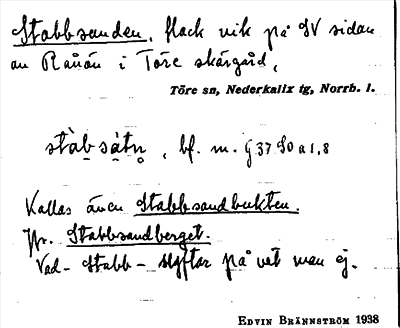 Stabbsanden, flack vik på SV sidan
av Rånön i Töre skärgård,
Töre sn, Nederkalix tg, Norrb. l.
stàb sátn̥, bf. m. § 37 S0 a 1,8
Kallas även Stabbsandbukten.
Jfr. Stabbsandberget.
Vad - Stabb - syftar på vet man ej.
EDVIN BRÄNNSTRÖM 1938